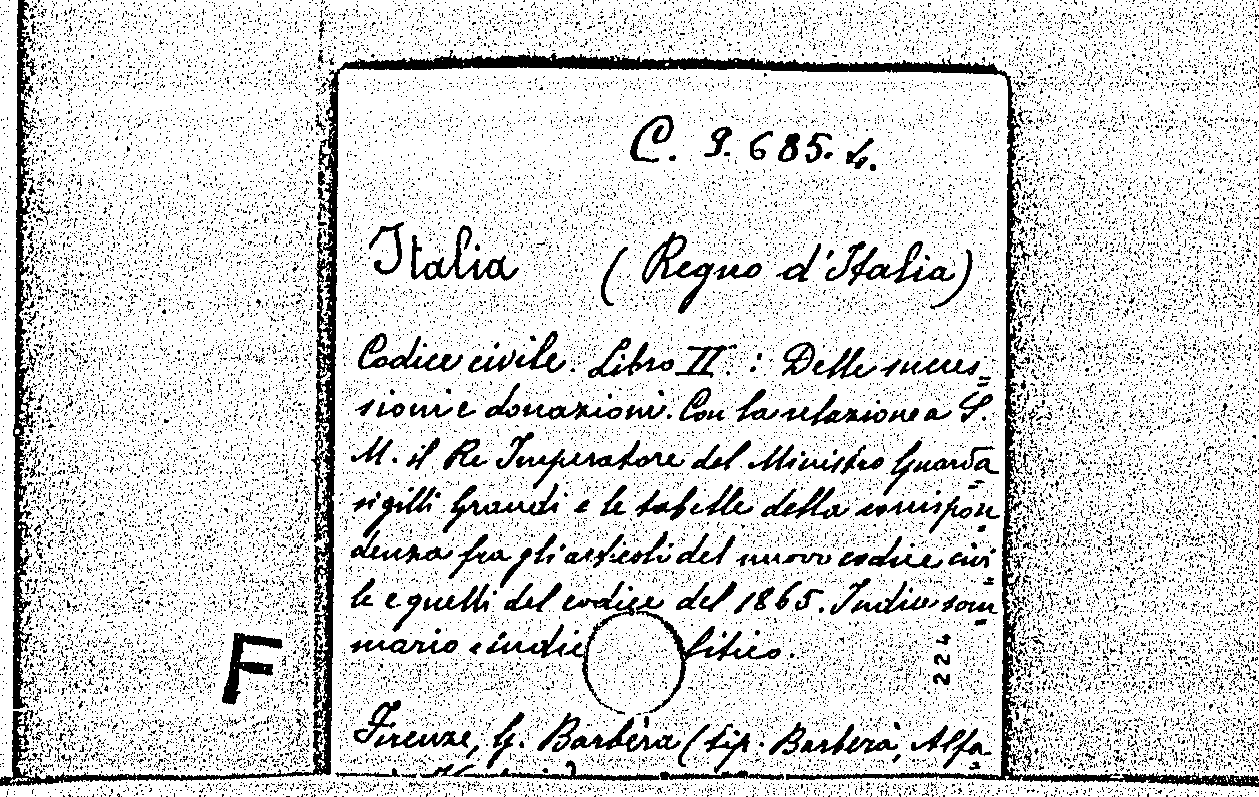 C. 9. 685. 4.
Italia (Regno d'Italia)
Codice civile. Libro II. : Delle succes=
sioni e donazioni. Con la relazione a S.
M. il Re Imperatore del Ministro Guarda
sigilli Grandi e le tabelle della corrispon
denza fra gli articoli del nuovo codice civi
le e quelli del codice del 1865. Indice som
mario e indic litico.
224
F
Firenze, G. Barbèra (tip. Barbèra, Alfa